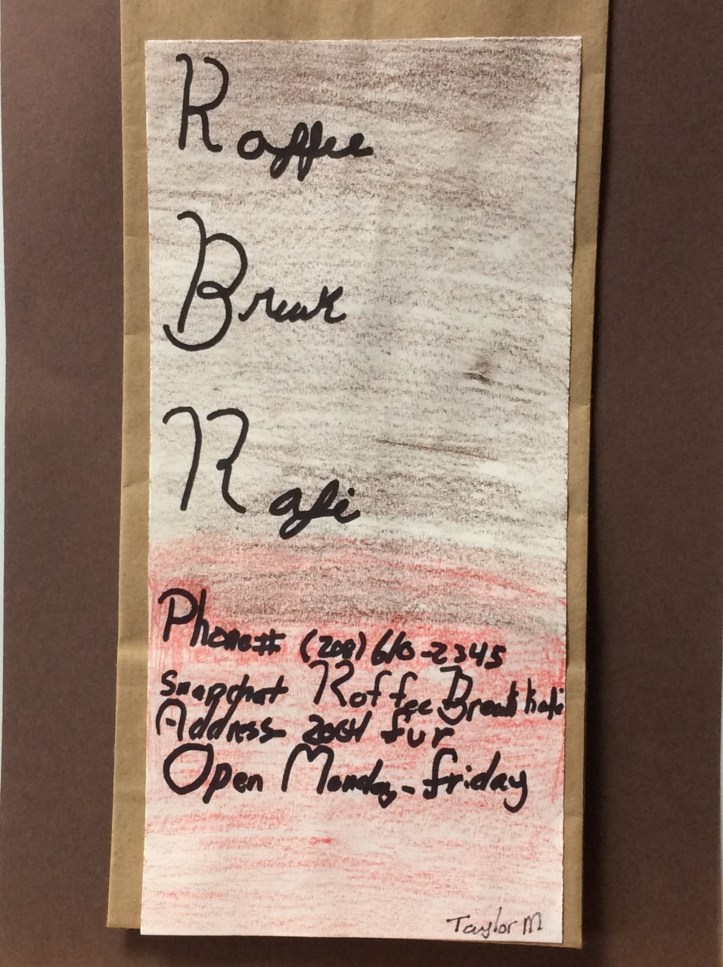 Koffee
Break
Kafi
Phone# (208) 610-2345
Snapchat Koffee Break kafi
Address- 2001 fur
Open Monday-friday
Taylor M